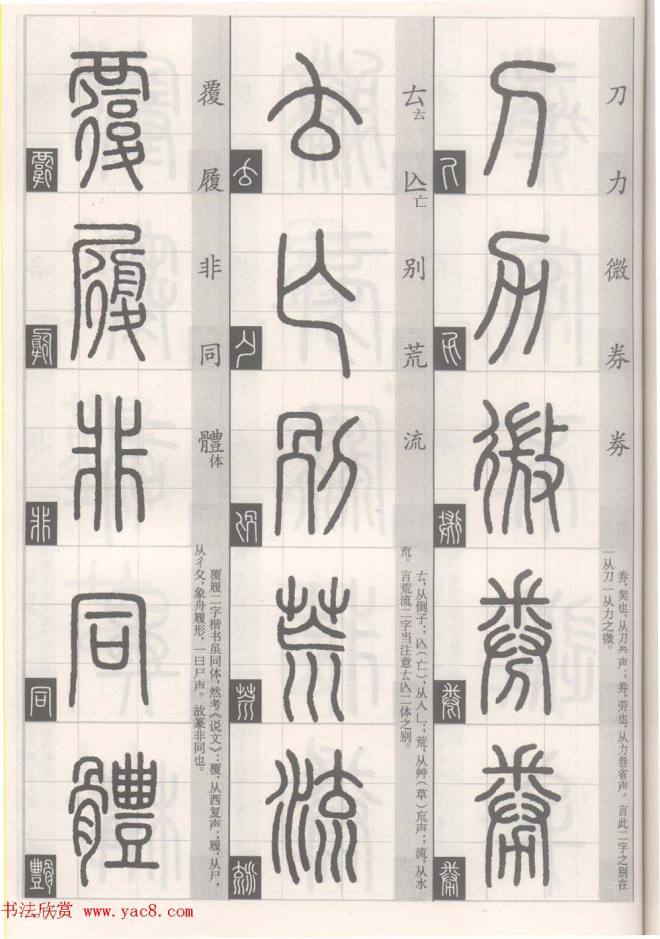 刀力微券劵
刀力微券劵
券,契也,从刀𢍏声;劵,劳也,从力卷省声。言此二字之别在
一从刀一从力之微。
𠫓去亾亡别荒流
𠫓亾别荒流
𠫓,从倒子;亾(亡),从人乚;荒,从艸(草)巟声;流,从水
㐬。言荒流二字当注意𠫓亾二体之别。
覆履非同體体
覆履非同體
覆履二字楷书虽同体,然考《说文》:覆,从西复声;履,从尸,
从彳夂,象舟履形,一曰尸声。故篆非同也。
书法欣赏 www.yac8.com